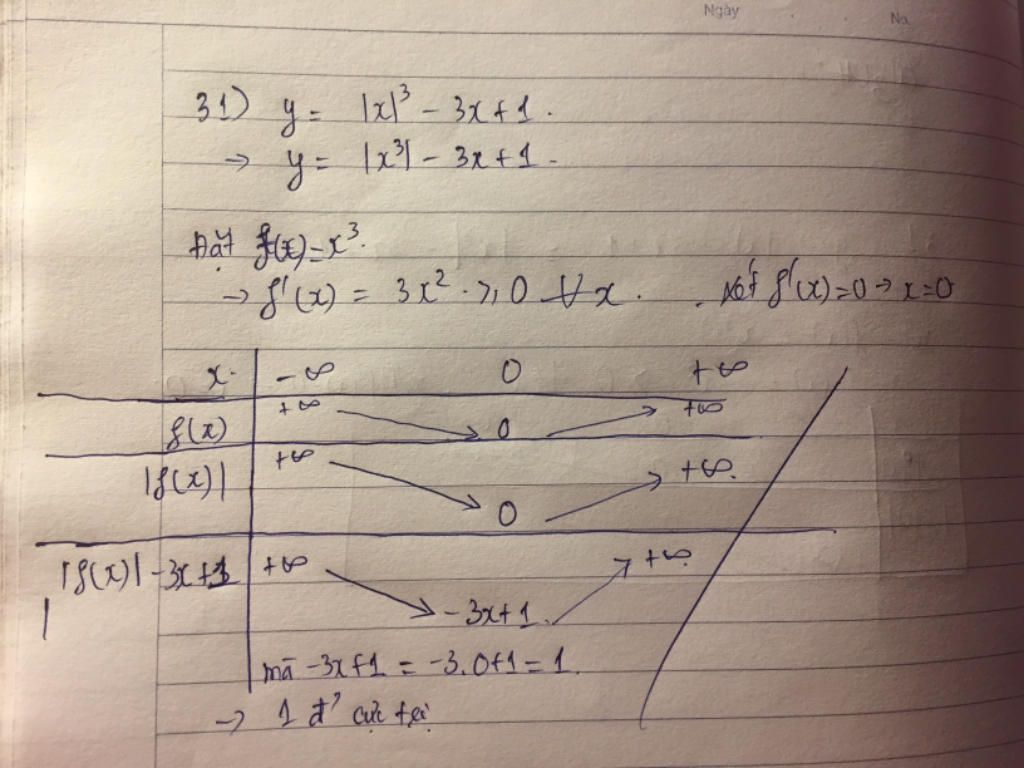 Ngày
No.
31) y = |x|³ - 3x + 1.
→ y = |x³| - 3x + 1.
Đặt f(x) = x³.
→ f'(x) = 3x² ⩾ 0 ∀x. . xét f'(x) = 0 → x = 0
x -∞ 0 +∞
f(x) +∞ 0 +∞
|f(x)| +∞ 0 +∞.
|f(x)| - 3x + 1 +∞ -3x + 1. +∞.
mà -3x + 1 = -3.0 + 1 = 1.
→ 1 đ' cực trị